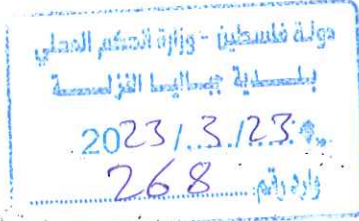 دولة فلسطين - وزارة الحكم المحلي
بلدية جباليا النزلة
2023/3/23
وارد رقم 268